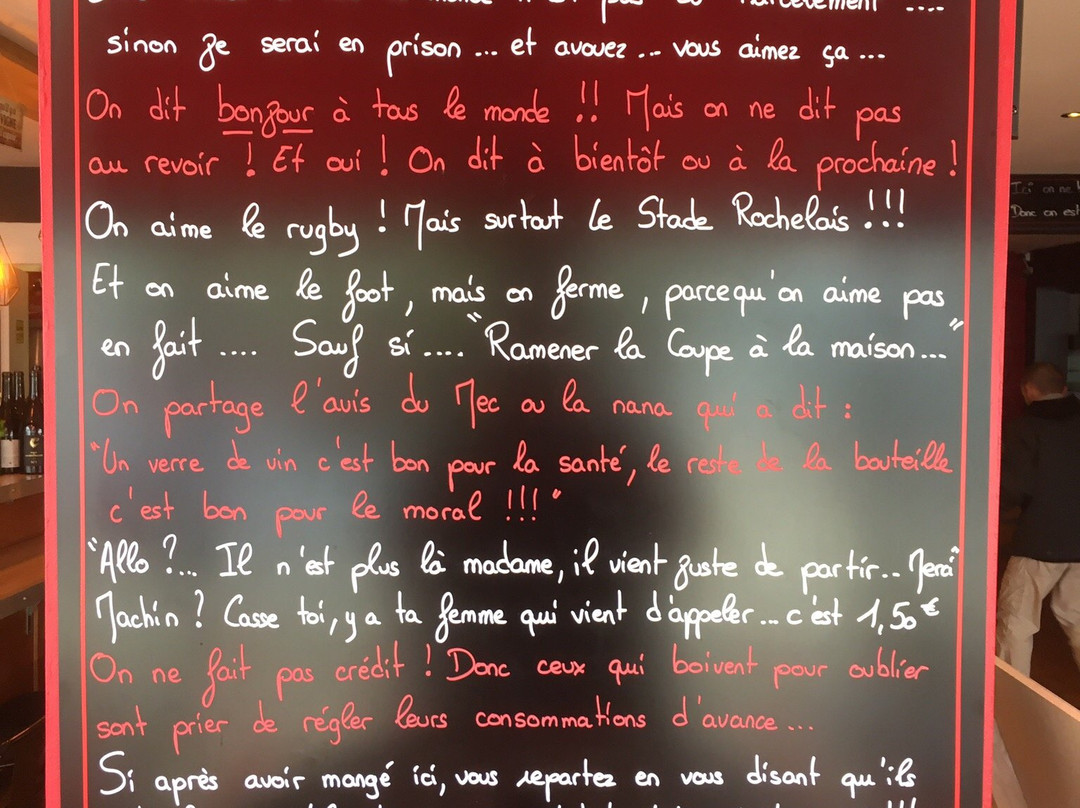 sinon je serai en prison ... et avouez ... vous aimez ça ...
On dit bonjour à tous le monde !! Mais on ne dit pas
au revoir ! Et oui ! On dit à bientôt ou à la prochaine !
On aime le rugby ! Mais surtout le Stade Rochelais !!!
Et on aime le foot, mais on ferme, parcequ'on aime pas
en fait .... Sauf si .... "Ramener la Coupe à la maison..."
On partage l'avis du Mec ou la nana qui a dit :
"Un verre de vin c'est bon pour la santé, le reste de la bouteille
c'est bon pour le moral !!!"
"Allo ?... Il n'est plus là madame, il vient juste de partir... Merci"
Machin ? Casse toi, y a ta femme qui vient d'appeler... c'est 1,50€
On ne fait pas crédit ! Donc ceux qui boivent pour oublier
sont prier de régler leurs consommations d'avance...
Si après avoir mangé ici, vous repartez en vous disant qu'ils
Ici on ne
Donc on est